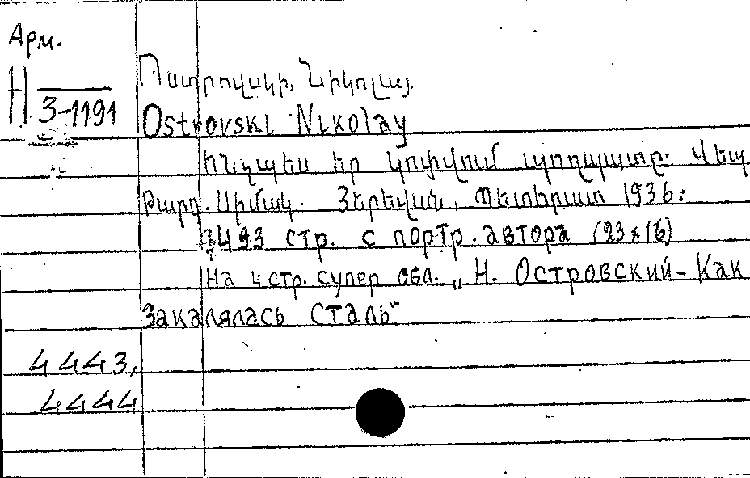 Арм.
Н
3-1191
Օստրովսկի, Նիկոլայ.
Ostrovski Nikolay
Ինչպես էր կոփվում պողպատը. Վեպ.
Թարգ. Սիմակ. Յերեվան, Պետհրատ 1936:
493 стр. с портр. автора (23x16)
На 4 стр. супер обл. „Н. Островский - Как
закалялась сталь"
4443,
4444